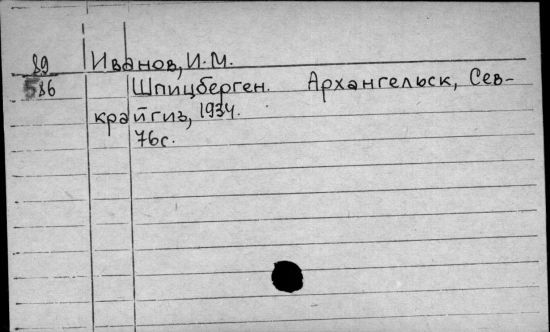 89 Иванов, И.М.
586 Шпицберген. Архангельск, Сев-
крайгиз, 1934.
76с.